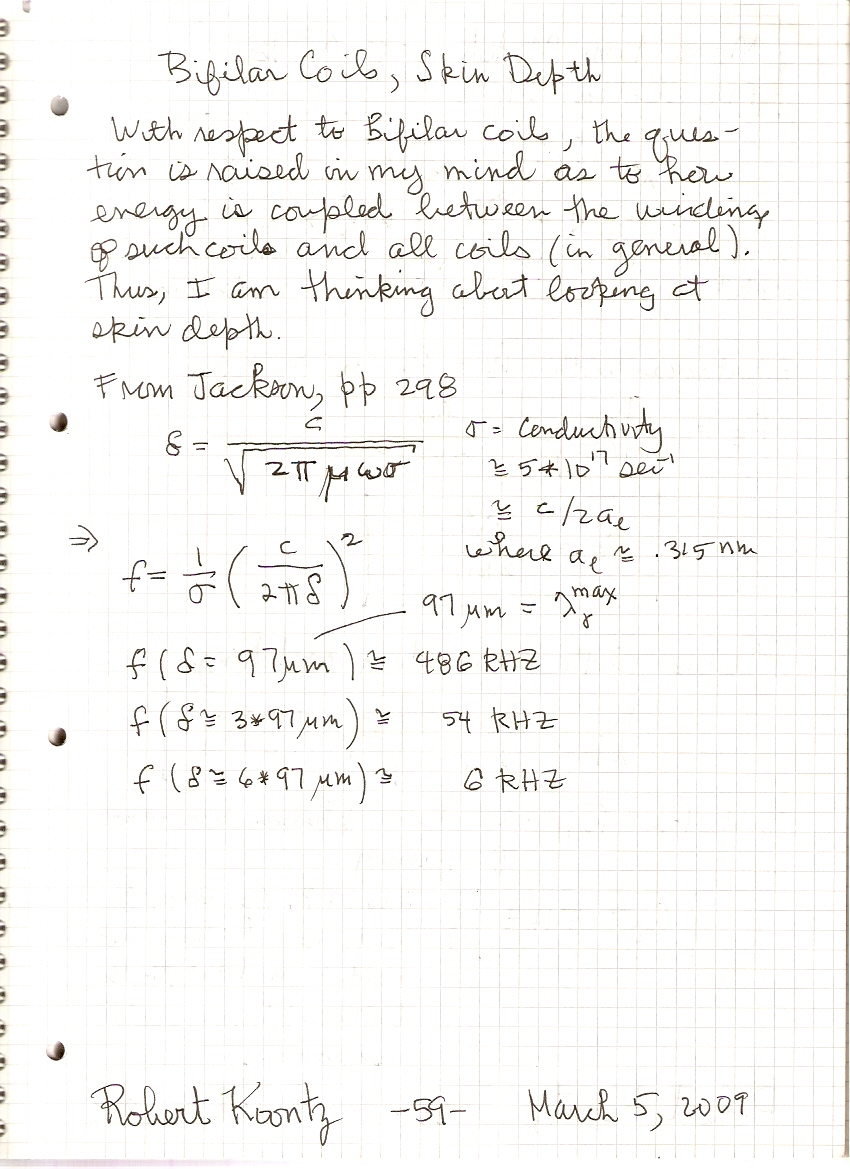 Bifilar Coils, Skin Depth
With respect to Bifilar coils, the ques-
tion is raised in my mind as to how
energy is coupled between the windings
of such coils and all coils (in general).
Thus, I am thinking about looking at
skin depth.
From Jackson, pp 298
δ = c / √(2π μ ω σ)
σ = Conductivity
≅ 5*10^17 sec^-1
≅ c/2a_e
where a_e ≅ .315 nm
⇒ f = 1/σ (c / 2πδ)^2
97 μm = λ_γ^max
f(δ = 97 μm) ≅ 486 kHZ
f(δ ≅ 3*97 μm) ≅ 54 kHZ
f(δ ≅ 6*97 μm) ≅ 6 kHZ
Robert Koontz -59- March 5, 2009